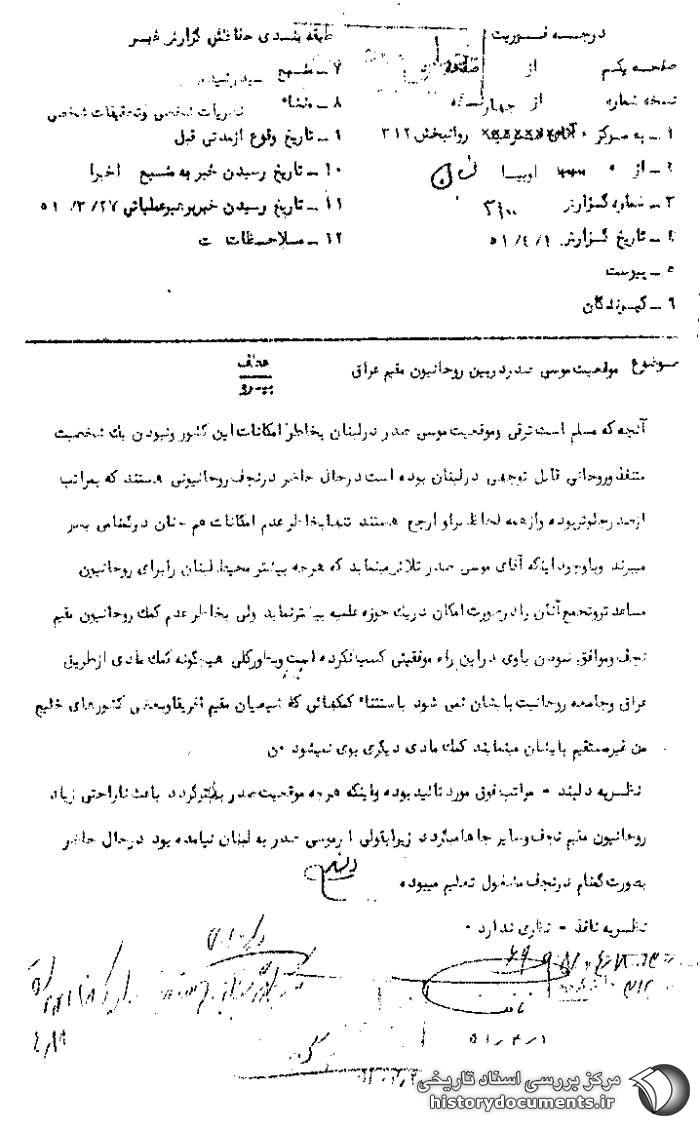 درجـــه فـــوریت
صفحـه یکـم از صفحه
نسخه شماره از چهار نسخه
۱ ــ به مـرکز ۳۱۲
۲ ــ از ۰ اوبیـا
۳ ــ شماره گـزارش
۴ ــ تاریخ گـزارش ۵۱/۴/۱
۵ ــ پیوست
۶ ــ گیـرنـدگان
طبقه بنـدی حفاظتی گزارش خبـر
۷ ــ منبـع
۸ ــ منشاء نظریات شخصی وتحقیقات شخصی
۹ ــ تاریخ وقوع ازمدتی قبل
۱۰ ــ تاریخ رسیدن خبر به منبع اخیرا
۱۱ ــ تاریخ رسیدن خبربرهبرعملیاتی ۵۱/۳/۲۷
۱۲ ــ مـلاحـظات
موضـوع موقعیت موسی صدردربین روحانیون مقیم عراق
عطف
پیـرو
آنچه که مسلم است ترقی وموقعیت موسی صدر درلبنان بخاطر امکانات این کشور ونبودن یك شخصیت
متنفذ وروحانی قابل توجهی درلبنان بوده است درحال حاضر درنجف روحانیونی هستند که بمراتب
ازصدر جلوتربوده وازهمه لحاظ براو ارجح هستند تنهابخاطر عدم امکانات هم چنان درگمنامی بسر
میبرند وباوجود اینکه آقای موسی صدر تلاش مینماید که هرچه بیشتر محیط لبنان رابرای روحانیون
مساعد ترو تجمع آنان رادرصورت امکان دریك حوزه علمیه بیشترنماید ولی بخاطر عدم کمك روحانیون مقیم
نجف وموافق نبودن باوی دراین راه موفقیتی کسب نکرده است وبطورکلی هیچگونه کمك مادی ازطریق
عراق وجامعه روحانیت بایشان نمی شود باستثناء کمکهائی که شیعیان مقیم آفریقا وبعضی کشورهای خلیج
من غیرمستقیم بایشان مینمایند کمك مادی دیگری بوی نمیشود ۰ن
نظـریه دلبند ۰ مراتب فوق مورد تائید بوده واینکه هرچه موقعیت صدر بهترگردد باعث ناراحتی زیاد
روحانیون مقیم نجف وسایر جاهامیگردد زیرابقولی اگرموسی صدر به لبنان نیامده بود درحال حاضر
بصورت گمنام درنجف مشغول تعلیم میبود۰
نظـریه نافذ ۰ نظری ندارد ۰
نافذ
۵۱/۴/۱
مرکز بررسی اسناد تاریخی
historydocuments.ir